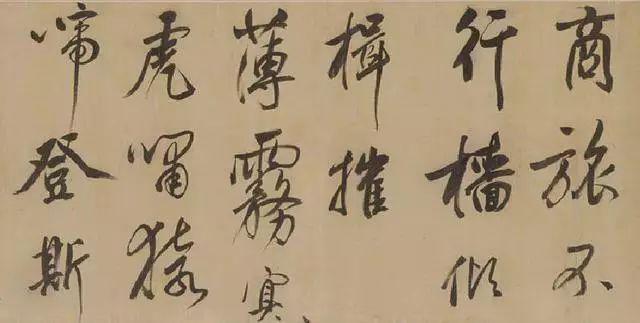 商旅不
行檣傾
楫摧
薄霧冥
虎嘯猿
啼登斯